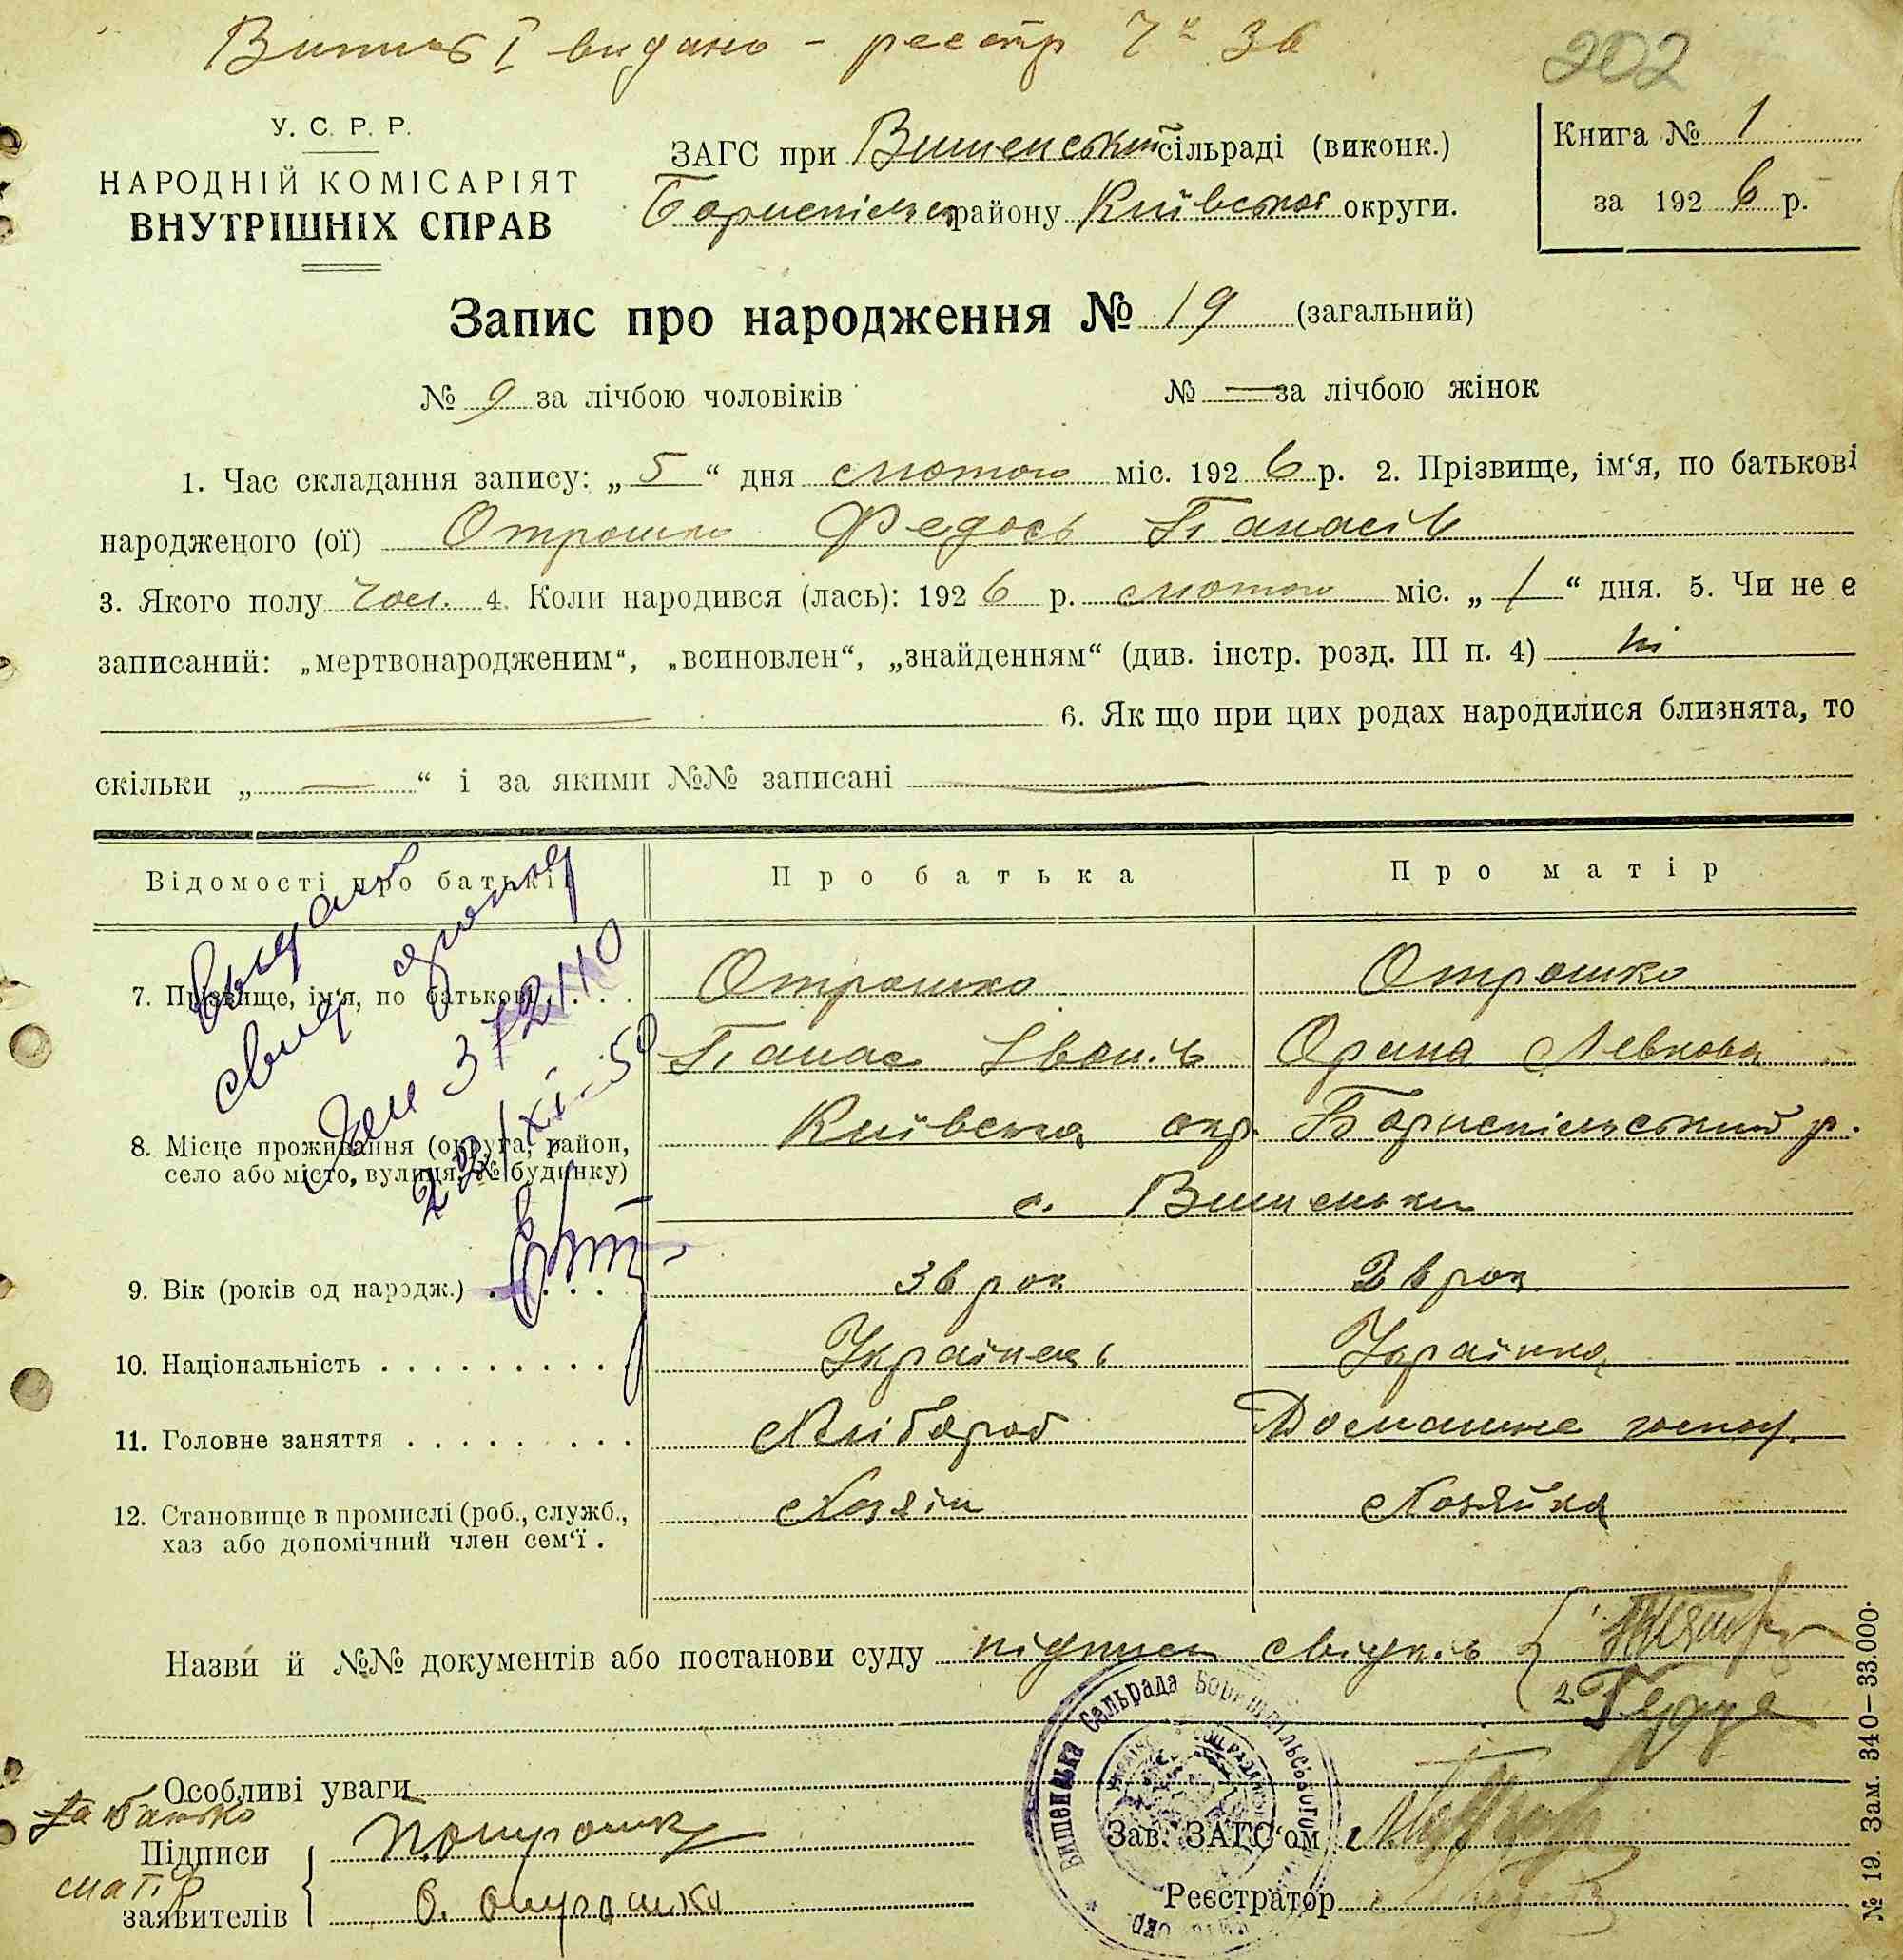 Випис I видано - реєстр Ч 36
202
У. С. Р. Р.
НАРОДНІЙ КОМІСАРІЯТ
ВНУТРІШНІХ СПРАВ
ЗАГС при Вишенській сільраді (виконк.)
Бориспільськ району Київської округи.
Книга № 1
за 1926 р.
Запис про народження № 19 (загальний)
№ 9 за лічбою чоловіків № — за лічбою жінок
1. Час складання запису: „5“ дня лютого міс. 1926 р. 2. Прізвище, ім‘я, по батькові
народженого (ої) Отрошко Федось Панасів
3. Якого полу чол. 4. Коли народився (лась): 1926 р. лютого міс. „1“ дня. 5. Чи не є
записаний: „мертвонародженим“, „всиновлен“, „знайденням“ (див. інстр. розд. III п. 4) ні
6. Як що при цих родах народилися близнята, то
скільки „ — “ і за якими №№ записані —
Відомості про батьків Про батька Про матір
7. Прізвище, ім‘я, по батькові . . . . Отрошко Отрошко
Панас Іванів Орина Левкова
8. Місце проживання (округа, район, Київська окр. Бориспільський р.
село або місто, вулиця, № будинку)
с. Вишеньки
9. Вік (років од народж.) . . . . 36 рок 26 рок
10. Національність . . . . . . . . . Українець Українка
11. Головне заняття . . . . . . . . Хлібороб Домашнє господ.
12. Становище в промислі (роб., служб., Хозяін Хозяйка
хаз або допомічний член сем‘ї .
выдано
свид
22/XI-59
Назви й №№ документів або постанови суду підписи свідків
2 Гудзе
Особливі уваги
за батько
Підписи П. Отрошко
матір
заявителів О. Отрошко
Зав. ЗАГС‘ом
Реєстратор
Вишенська Сельрада Бориспільського
№ 19. Зам. 340—33.000.